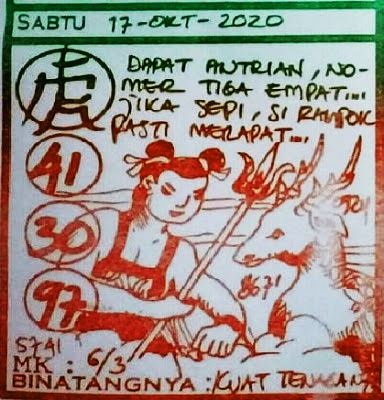 SABTU 17-OKT-2020
DAPAT ANTRIAN, NO-
MER TIGA EMPAT...
JIKA SEPI, SI RAMPOK
PASTI MERAPAT...
41
30
97
8671
5741
MK : 6/3
BINATANGNYA : KUAT